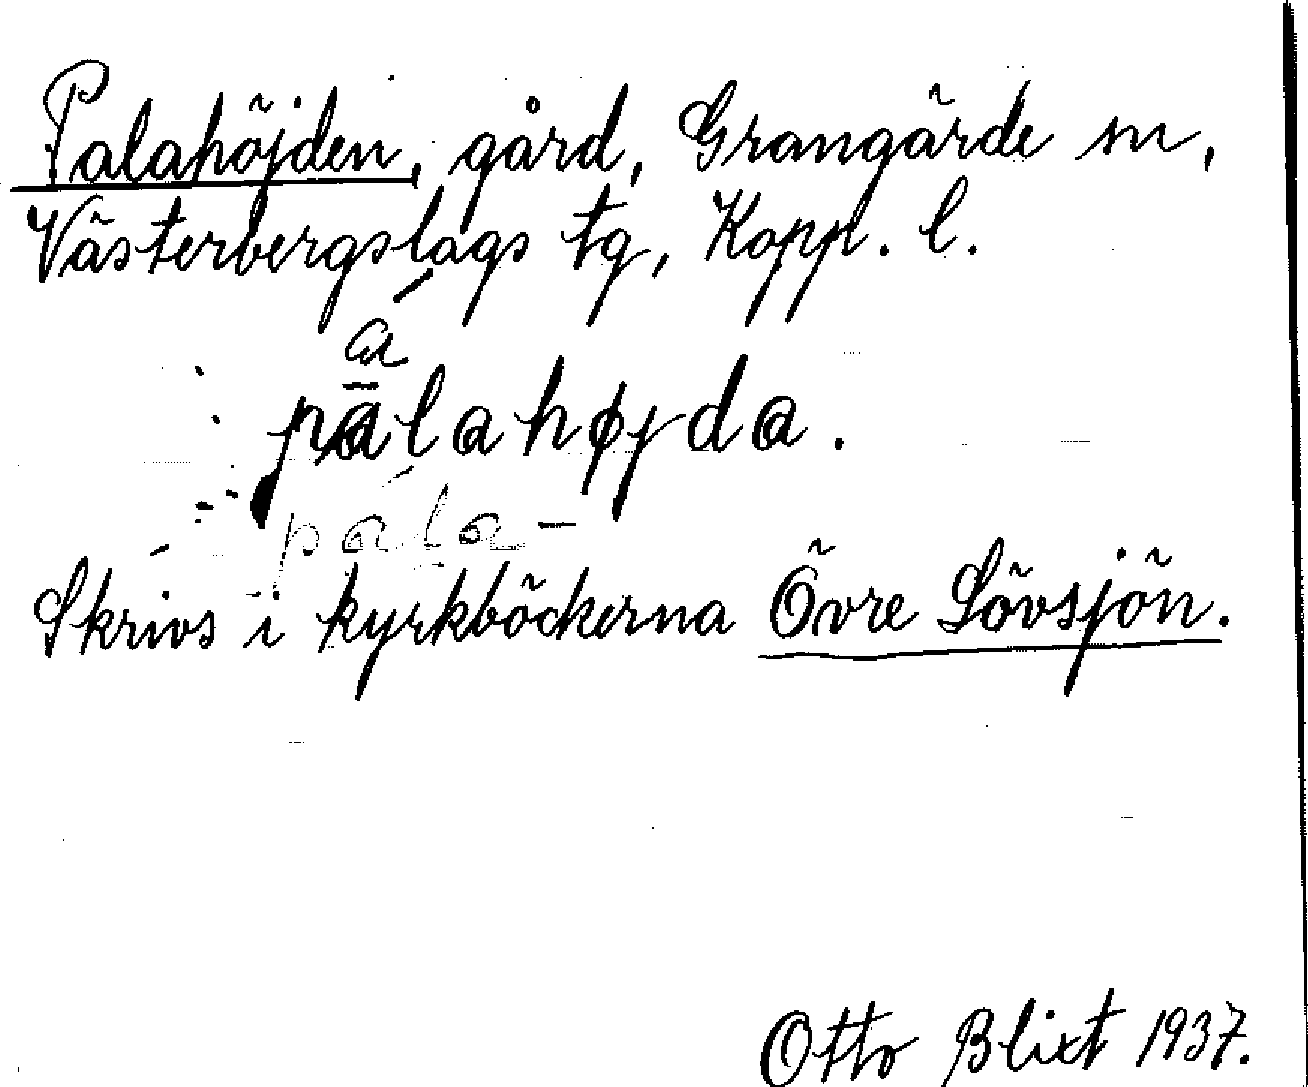 Palahöjden, gård, Grangärde sn,
Västerbergslags tg, Koppl. l.
a
pālahøjda.
pala-
Skrivs i kyrkböckerna Övre Lövsjön.
Otto Blixt 1937.